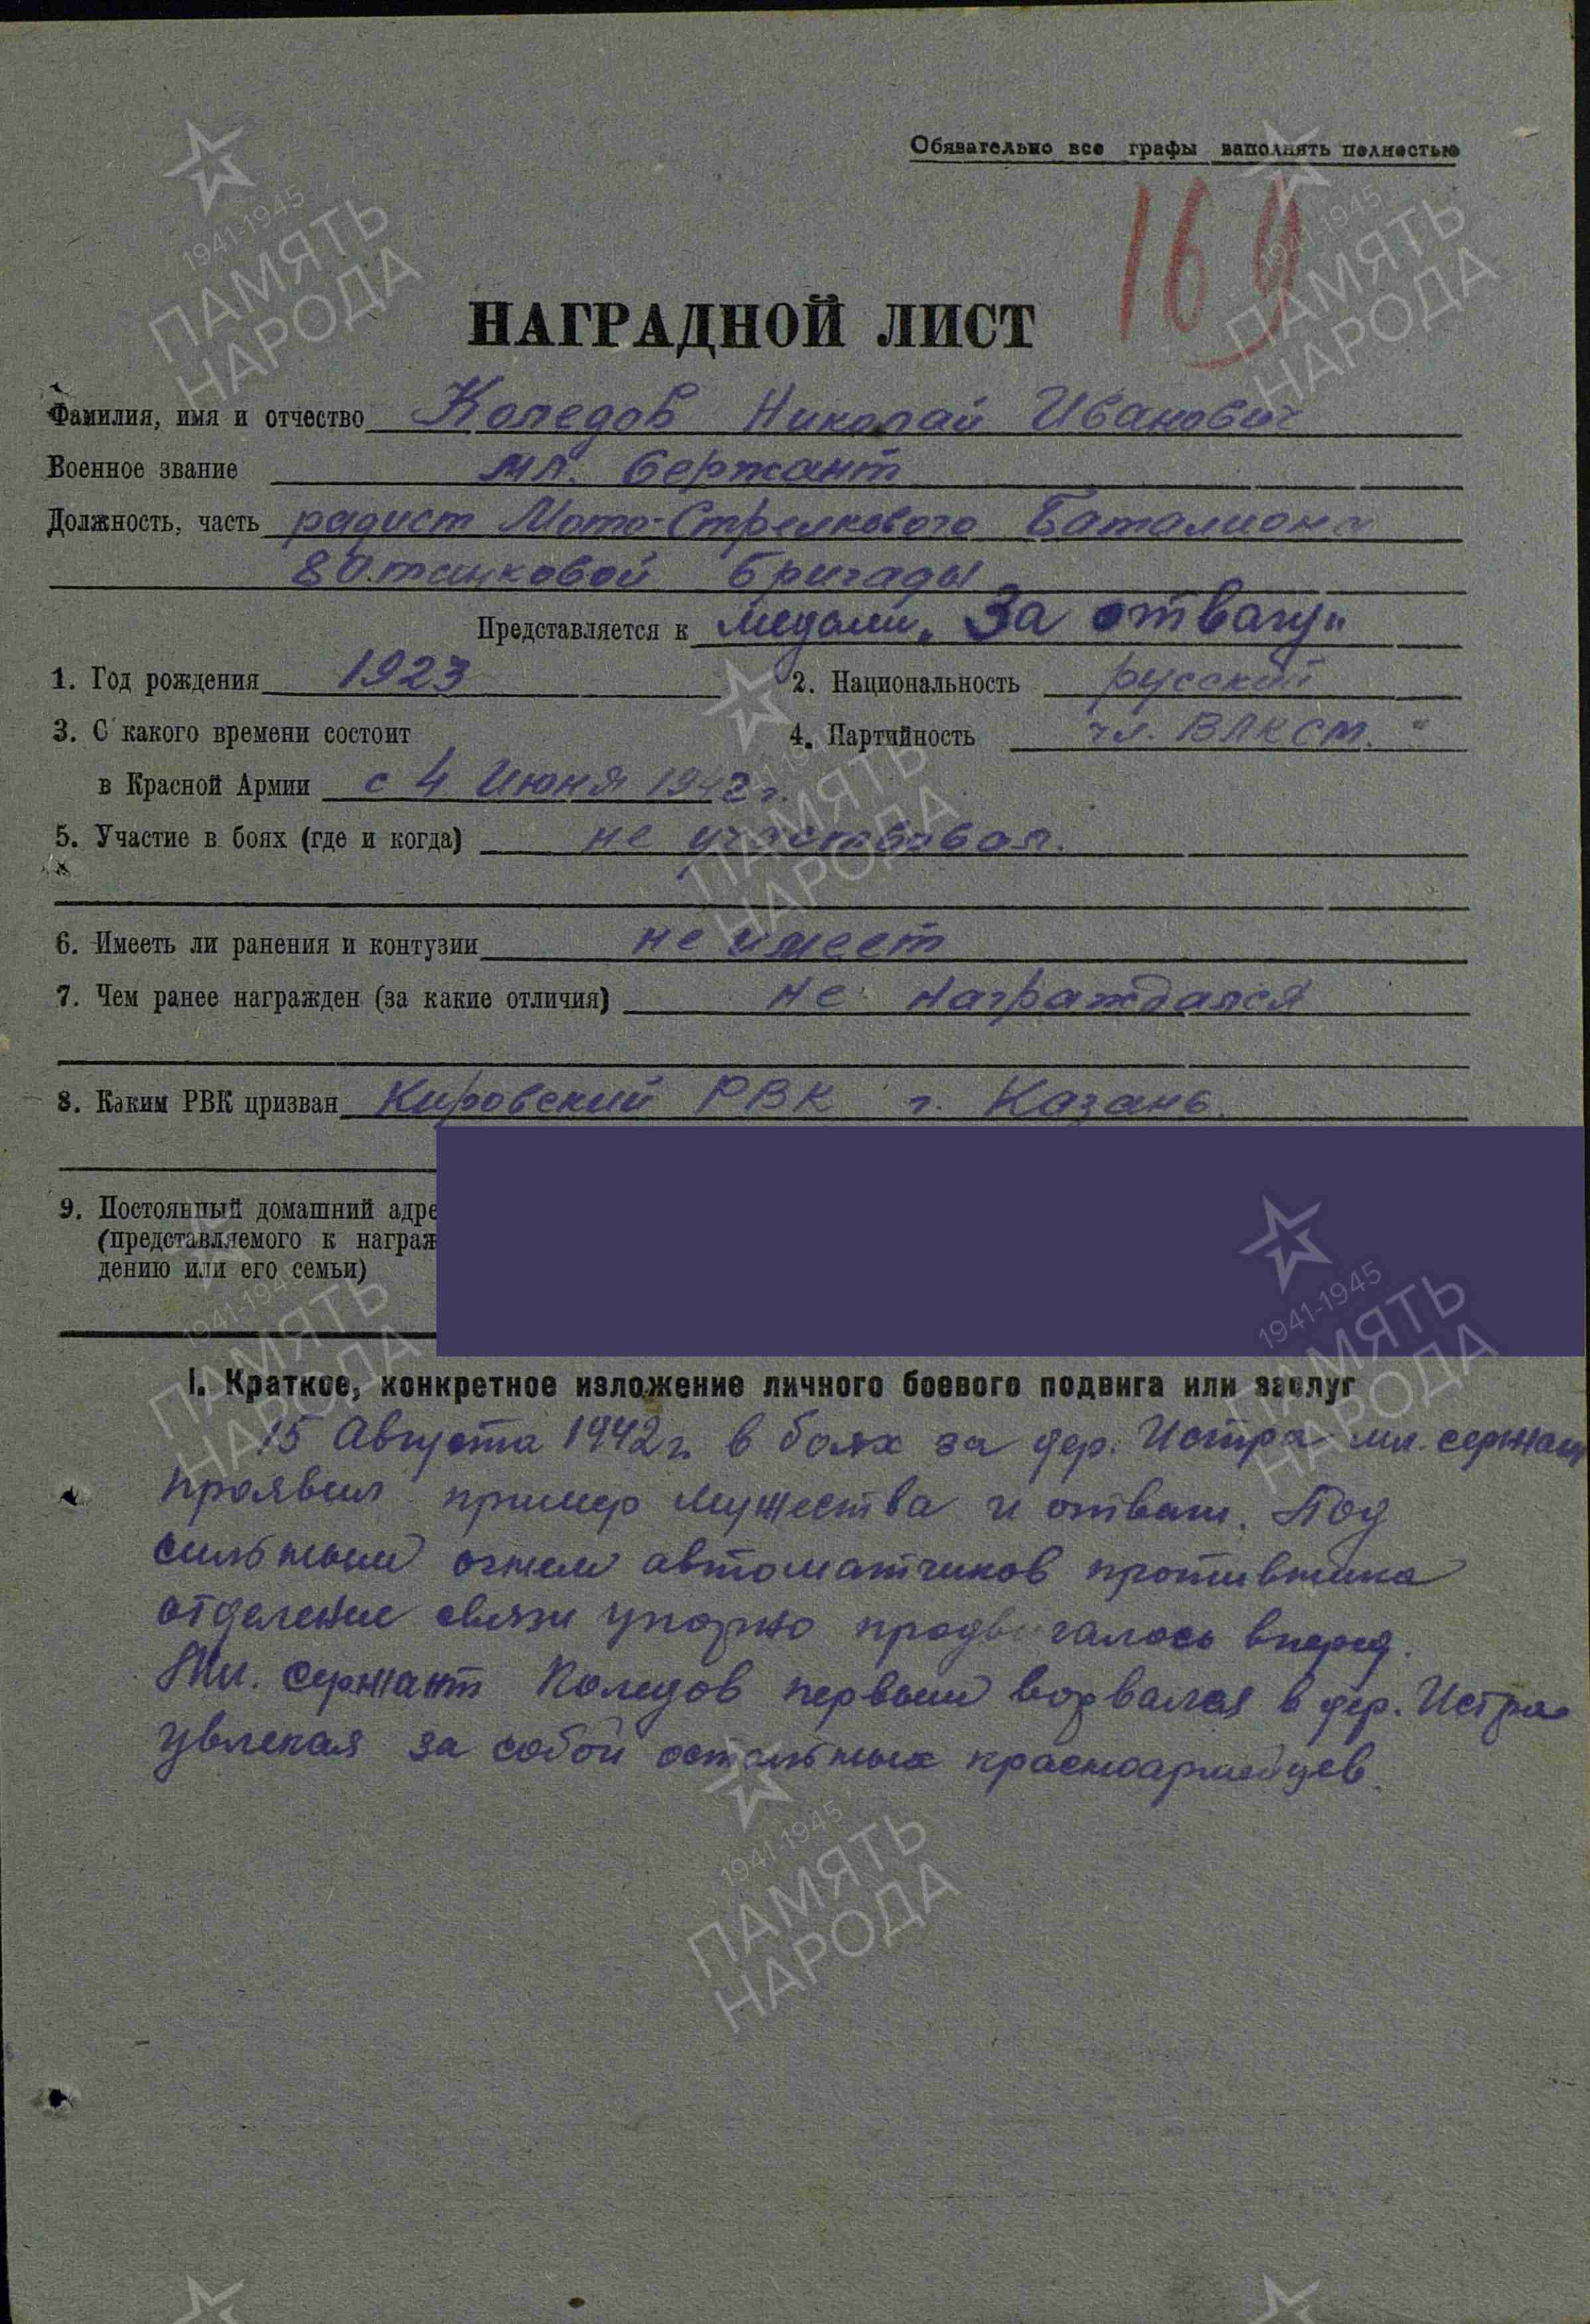 Обязательно все графы заполнять полностью
169
НАГРАДНОЙ ЛИСТ
Фамилия, имя и отчество Коледов Николай Иванович
Военное звание мл. Сержант
Должность, часть радист Мото-Стрелкового Баталиона
80 танковой Бригады
Представляется к медали „За отвагу"
1. Год рождения 1923 2. Национальность русский
3. С какого времени состоит 4. Партийность чл. ВЛКСМ.
в Красной Армии с 4 Июня 1942 г.
5. Участие в боях (где и когда) не участвовал.
6. Имееть ли ранения и контузии не имеет
7. Чем ранее награжден (за какие отличия) не награждался
8. Каким РВК призван Кировский РВК г. Казань.
9. Постоянный домашний адре
(представляемого к награж
дению или его семьи)
I. Краткое, конкретное изложение личного боевого подвига или заслуг
15 Августа 1942 г. в боях за дер. Истра мл. сержант
проявил пример мужества и отваги. Под
сильным огнем автоматчиков противника
отделение связи упорно продвигалось вперед.
Мл. сержант Коледов первым ворвался в дер. Истра
увлекая за собой остальных красноармейцев.
1941-1945
ПАМЯТЬ
НАРОДА
1941-1945
ПАМЯТЬ
НАРОДА
1941-1945
ПАМЯТЬ
НАРОДА
1941-1945
ПАМЯТЬ
НАРОДА
1941-1945
ПАМЯТЬ
НАРОДА
1941-1945
ПАМЯТЬ
НАРОДА